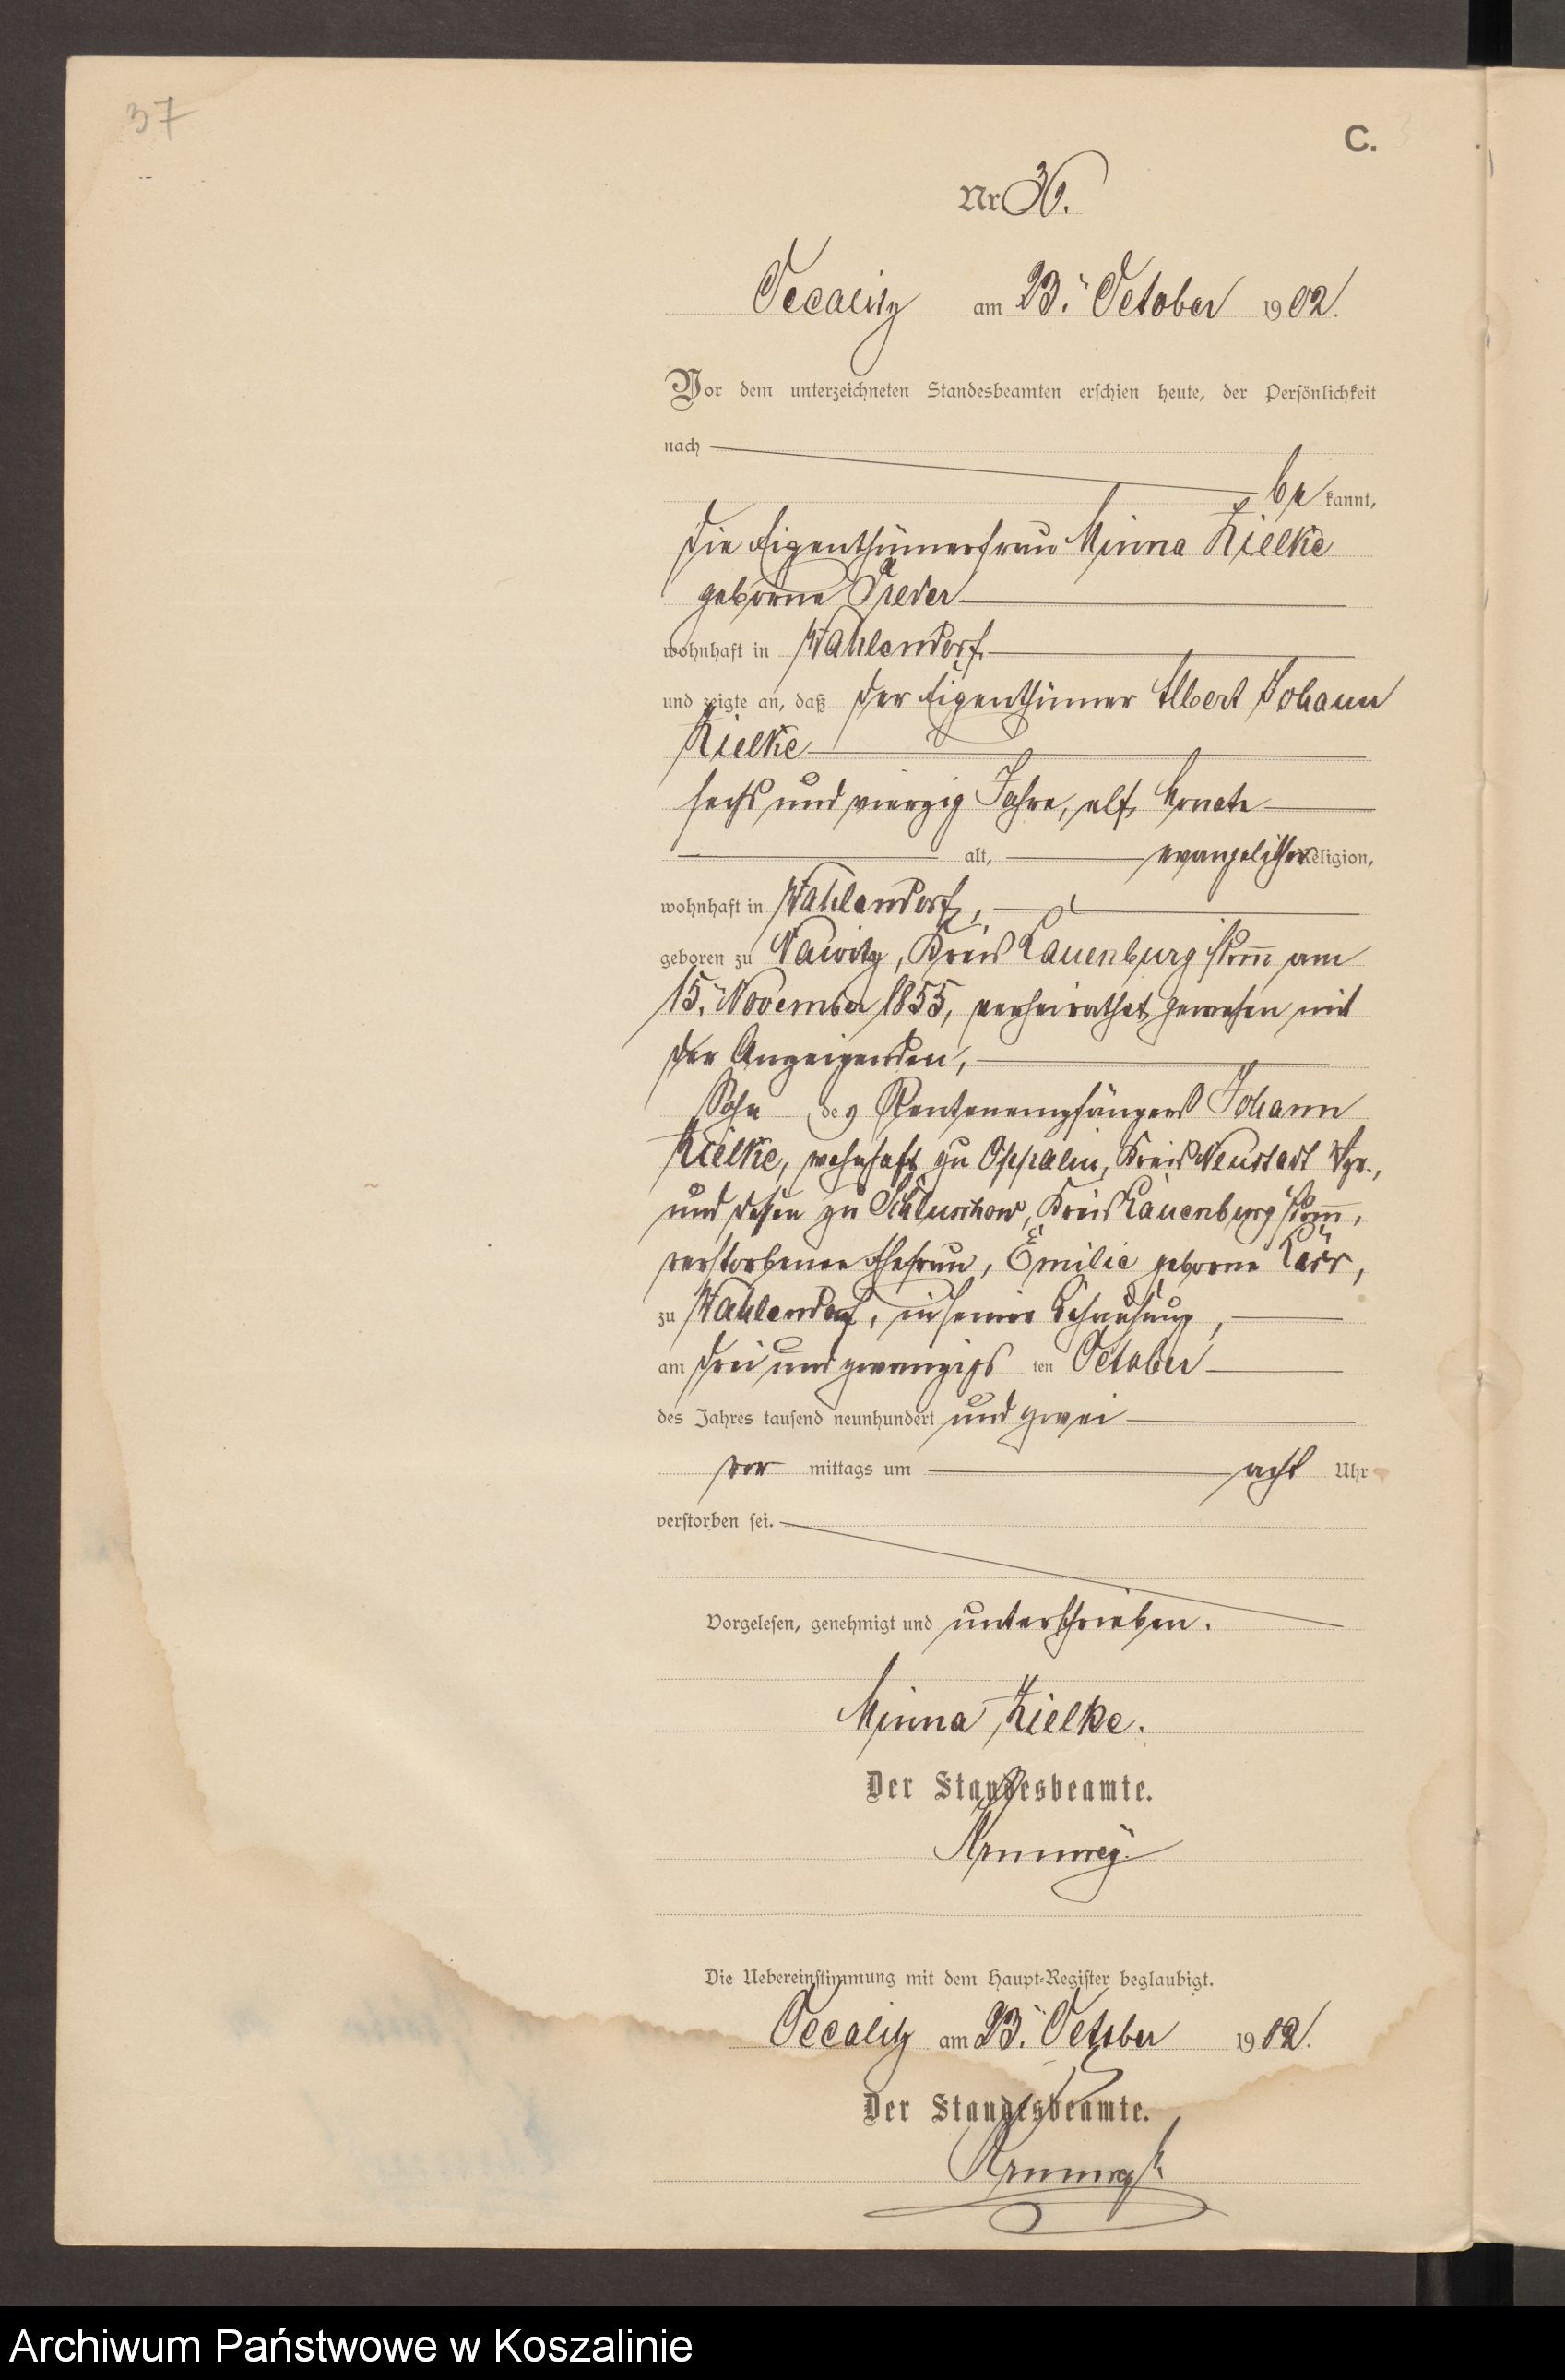 37
C.
Nr 36.
Occalitz am 23. October 1902.
Vor dem unterzeichneten Standesbeamten erschien heute, der Persönlichkeit
nach
bekannt,
die Eigenthümerfrau Minna Kielke
geborne
wohnhaft in Wahlendorf
und zeigte an, daß der Eigenthümer Albert Johann
Kielke
sechs und vierzig Jahre, elf Monate
alt, evangelischer Religion,
wohnhaft in Wahlendorf,
geboren zu Nawitz, Kreis Lauenburg i/Pom̅ am
15. November 1855, verheirathet gewesen mit
der Anzeigenden,
Sohn des Rentenempfängers Johann
Kielke, wohnhaft zu Oppalin, Kreis Neustadt Wpr.,
und dessen zu Schluschow, Kreis Lauenburg i/Pom̅,
verstorbenen Ehefrau, Emilie geborne
zu Wahlendorf, in seiner Behausung,
am drei und zwanzigsten October
des Jahres tausend neunhundert und zwei
vor mittags um acht Uhr
verstorben sei.
Vorgelesen, genehmigt und unterschrieben.
Minna Kielke.
Der Standesbeamte.
Die Uebereinstimmung mit dem Haupt-Register beglaubigt.
Occalitz am 23. October 1902.
Der Standesbeamte.
Archiwum Państwowe w Koszalinie